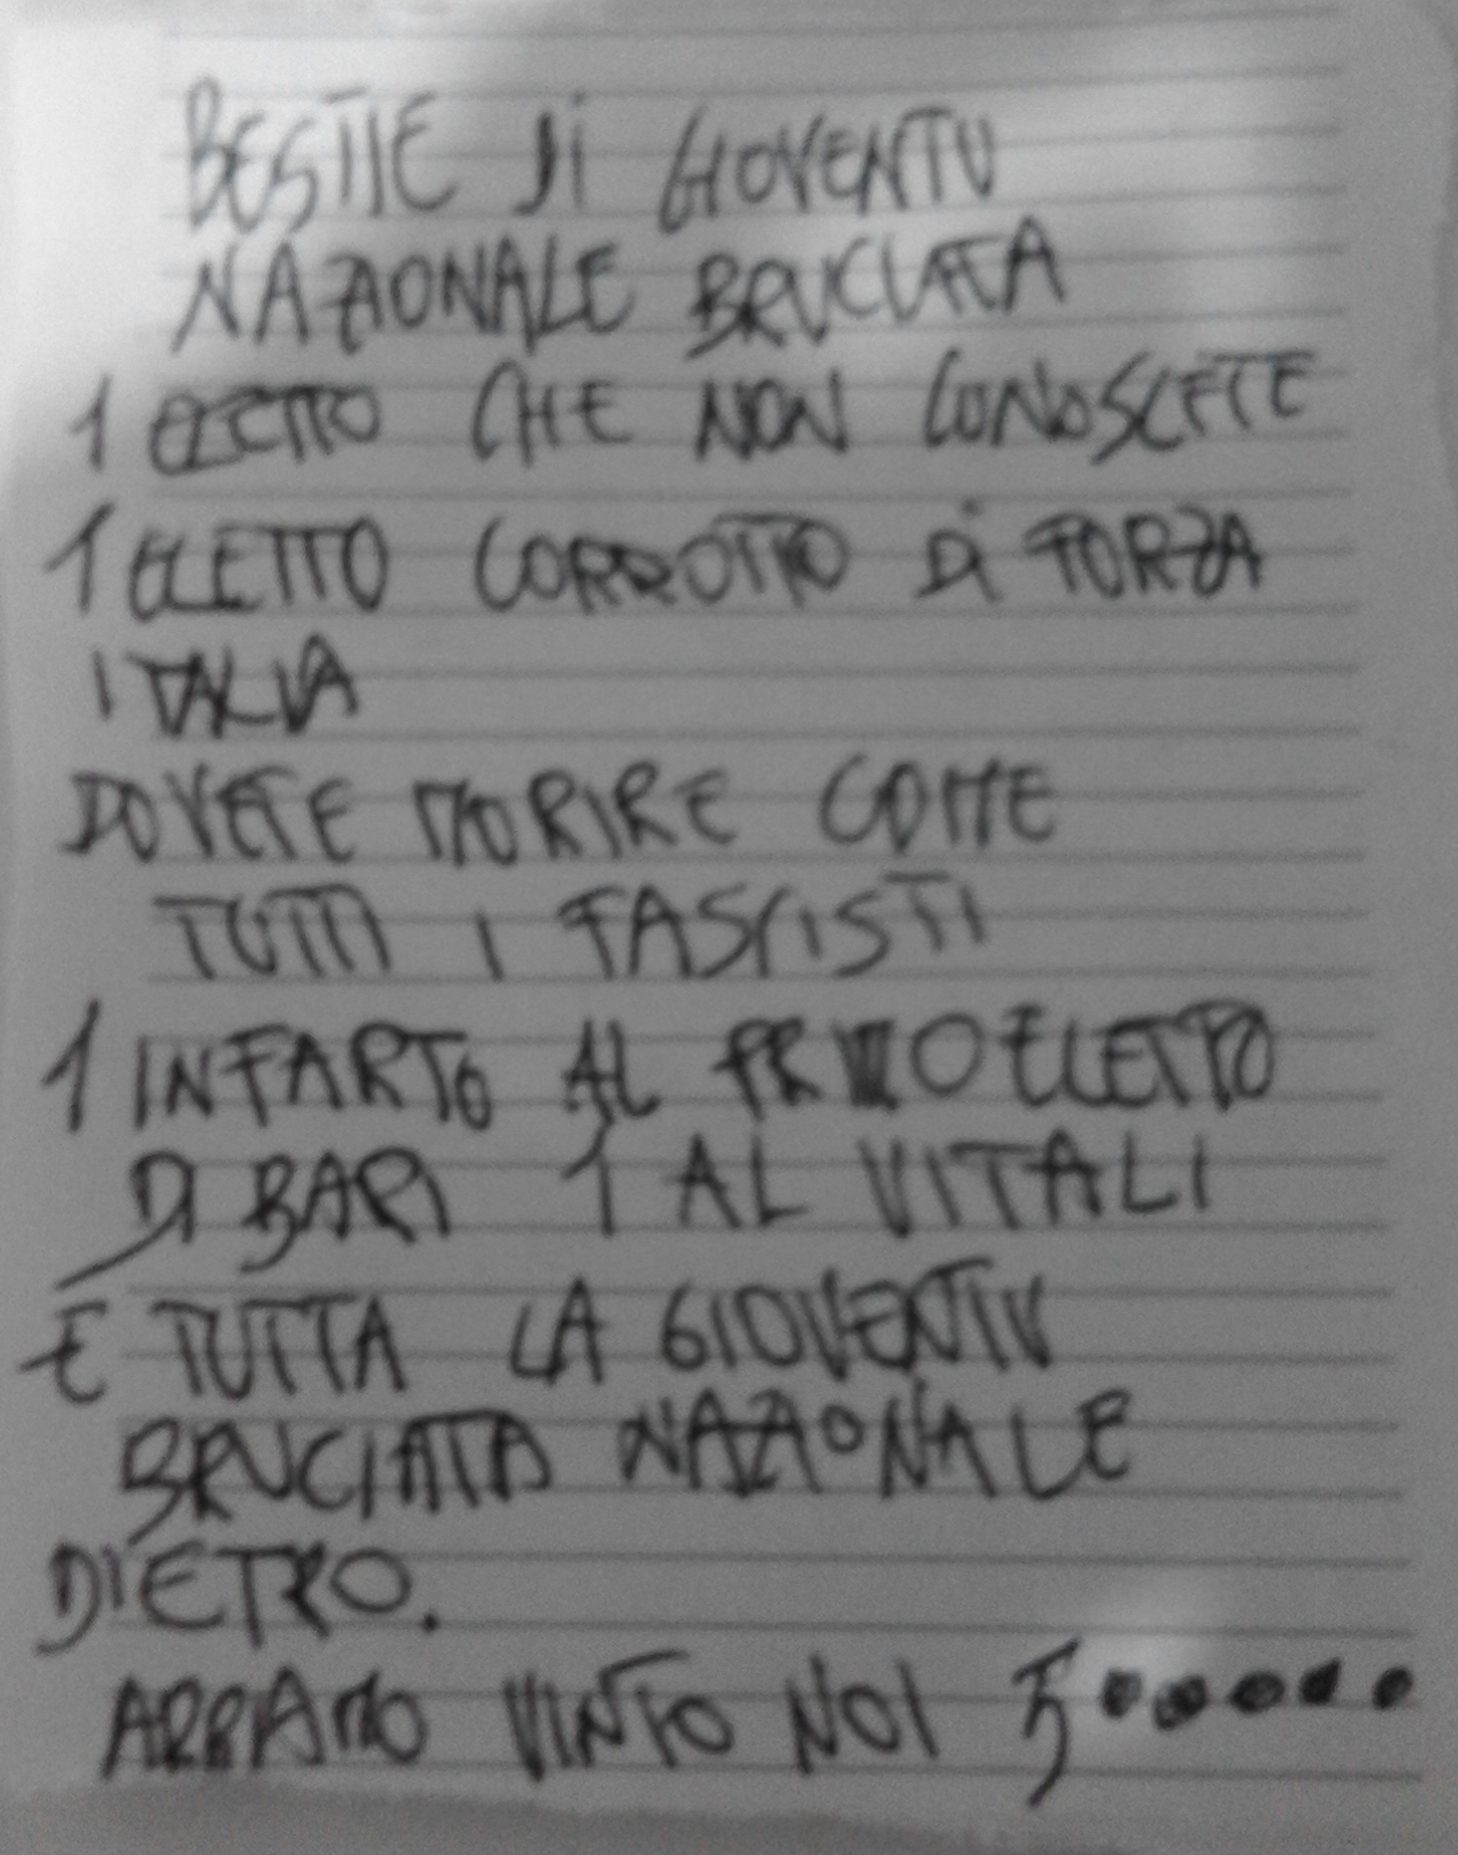 BESTIE Di GIOVENTU
NAZIONALE BRUCIATA
1 ELETTO CHE NON CONOSCETE
1 ELETTO CORROTTO Di FORZA
ITALIA
DOVETE MORIRE COME
TUTTI I FASCISTI
1 INFARTO AL PRIMO ELETTO
DI BARI 1 AL VITALI
E TUTTA LA GIOVENTU
BRUCIATA NAZIONALE
DIETRO.
ABBIAMO VINTO NOI 5.....